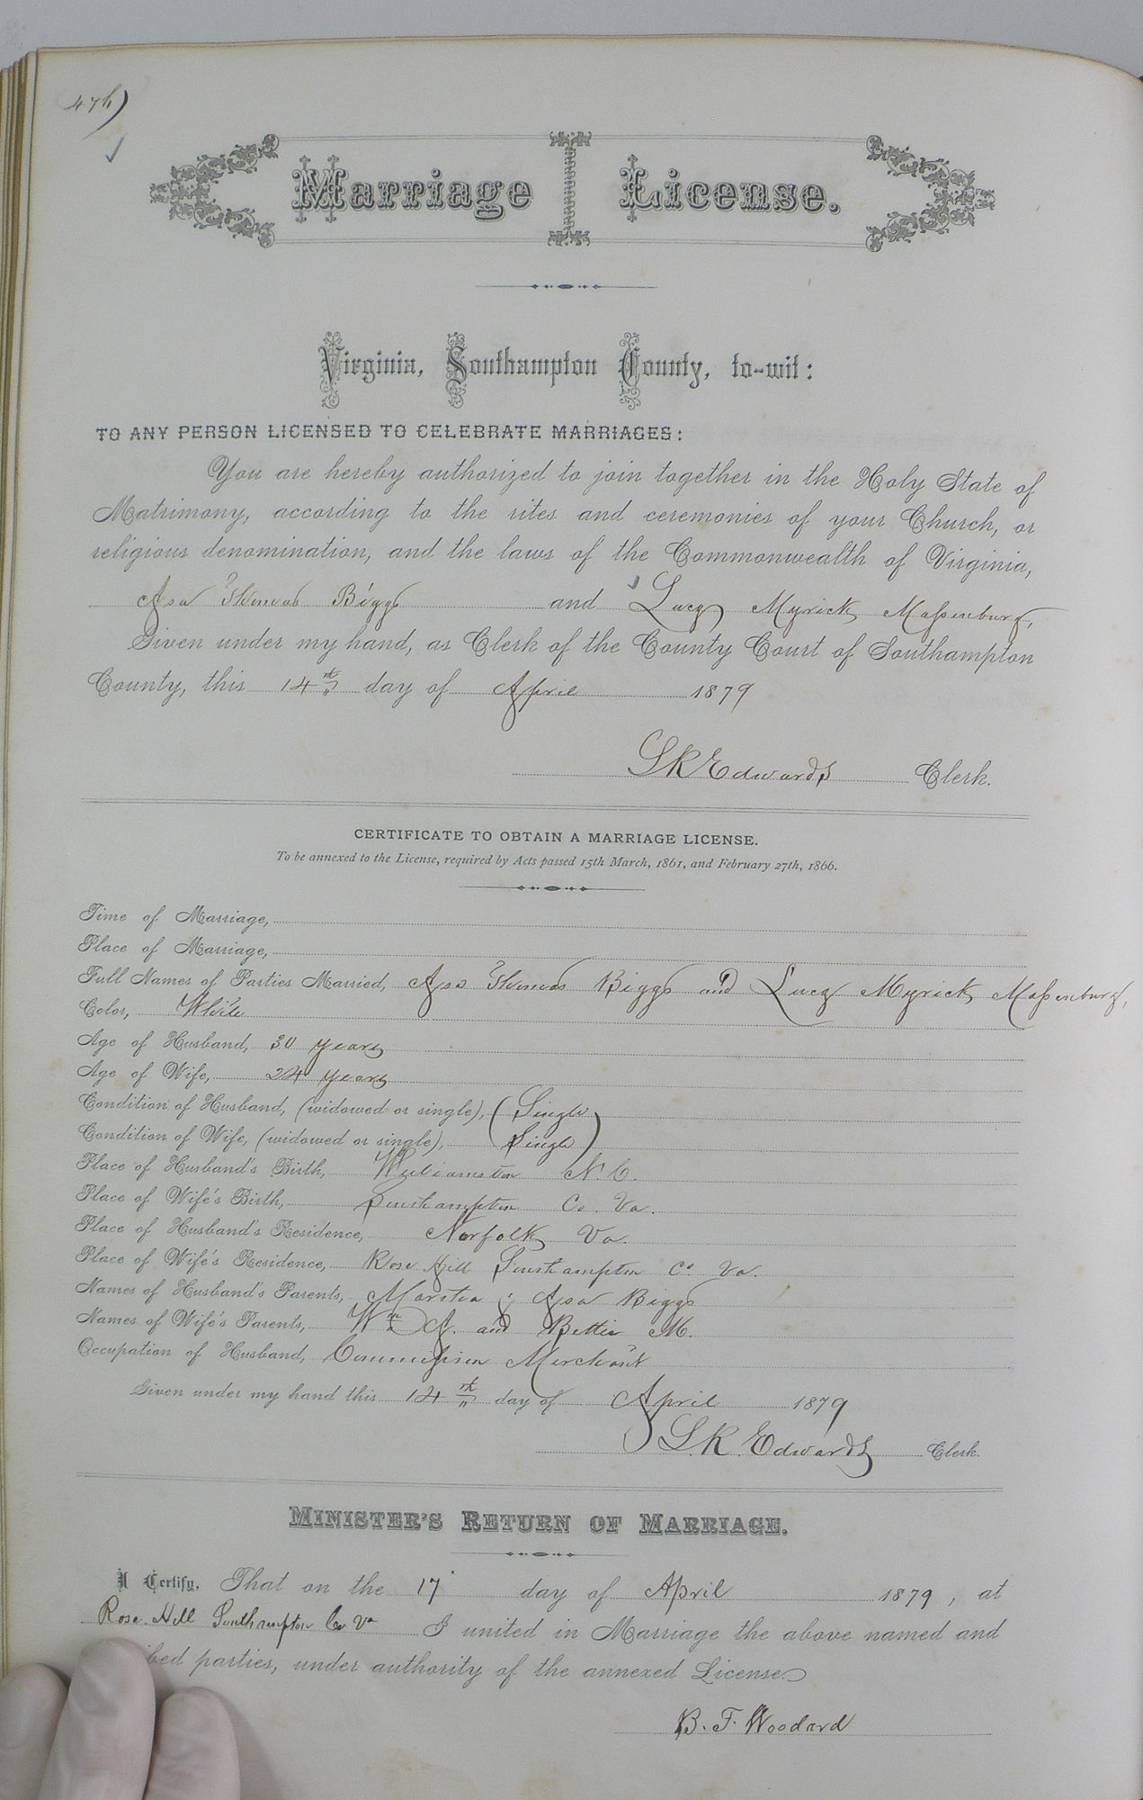 Marriage License.
Virginia, Southampton County, to-wit:
TO ANY PERSON LICENSED TO CELEBRATE MARRIAGES:
You are hereby authorized to join together in the Holy State of
Matrimony, according to the rites and ceremonies of your Church, or
religious denomination, and the laws of the Commonwealth of Virginia,
Asa Thomas Biggs and Lucy Myrick Massenburg,
Given under my hand, as Clerk of the County Court of Southampton
County, this 14th day of April 1879
L R Edwards Clerk.
CERTIFICATE TO OBTAIN A MARRIAGE LICENSE.
To be annexed to the License, required by Acts passed 15th March, 1861, and February 27th, 1866.
Time of Marriage,
Place of Marriage,
Full Names of Parties Married, Asa Thomas Biggs and Lucy Myrick Massenburg,
Color, White
Age of Husband, 30 years
Age of Wife, 24 years
Condition of Husband, (widowed or single), (Single
Condition of Wife, (widowed or single), Single)
Place of Husband's Birth, Williamston N.C.
Place of Wife's Birth, Southampton Co. Va.
Place of Husband's Residence, Norfolk Va.
Place of Wife's Residence, Rose Hill Southampton Co Va.
Names of Husband's Parents, Martha & Asa Biggs
Names of Wife's Parents, Wm A. and Bettie M.
Occupation of Husband, Commission Merchant
Given under my hand this 14th day of April 1879
L.R. Edwards Clerk.
MINISTER'S RETURN OF MARRIAGE.
I Certify, That on the 17 day of April 1879, at
Rose Hill Southampton Co Va I united in Marriage the above named and
parties, under authority of the annexed License.
B. F. Woodard